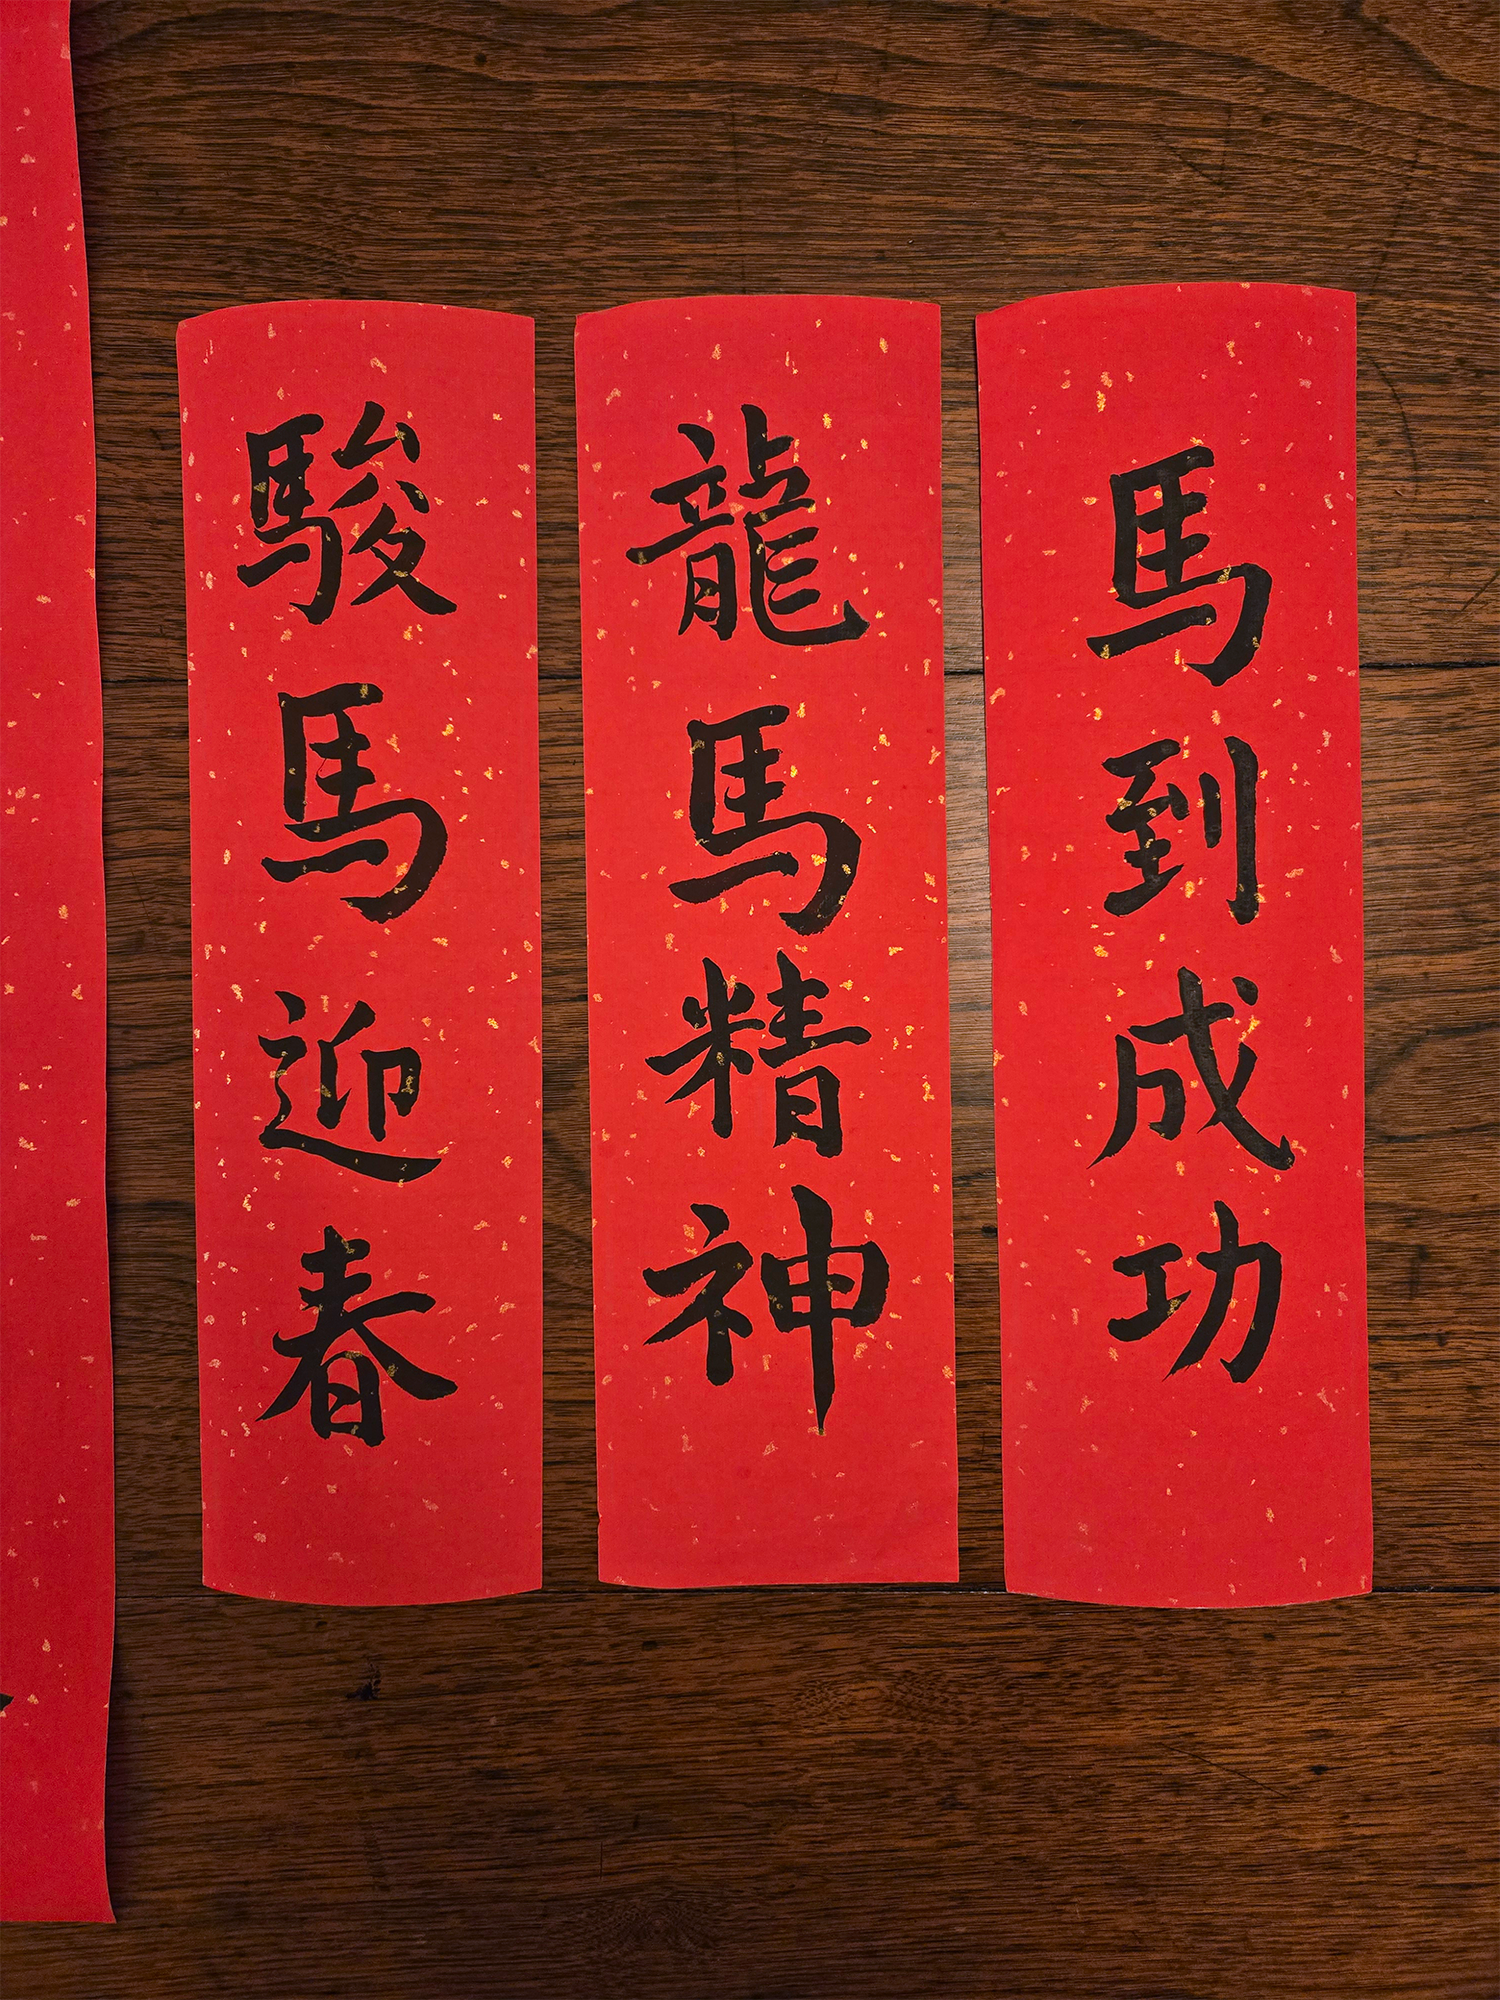 馬到成功
龍馬精神
駿馬迎春